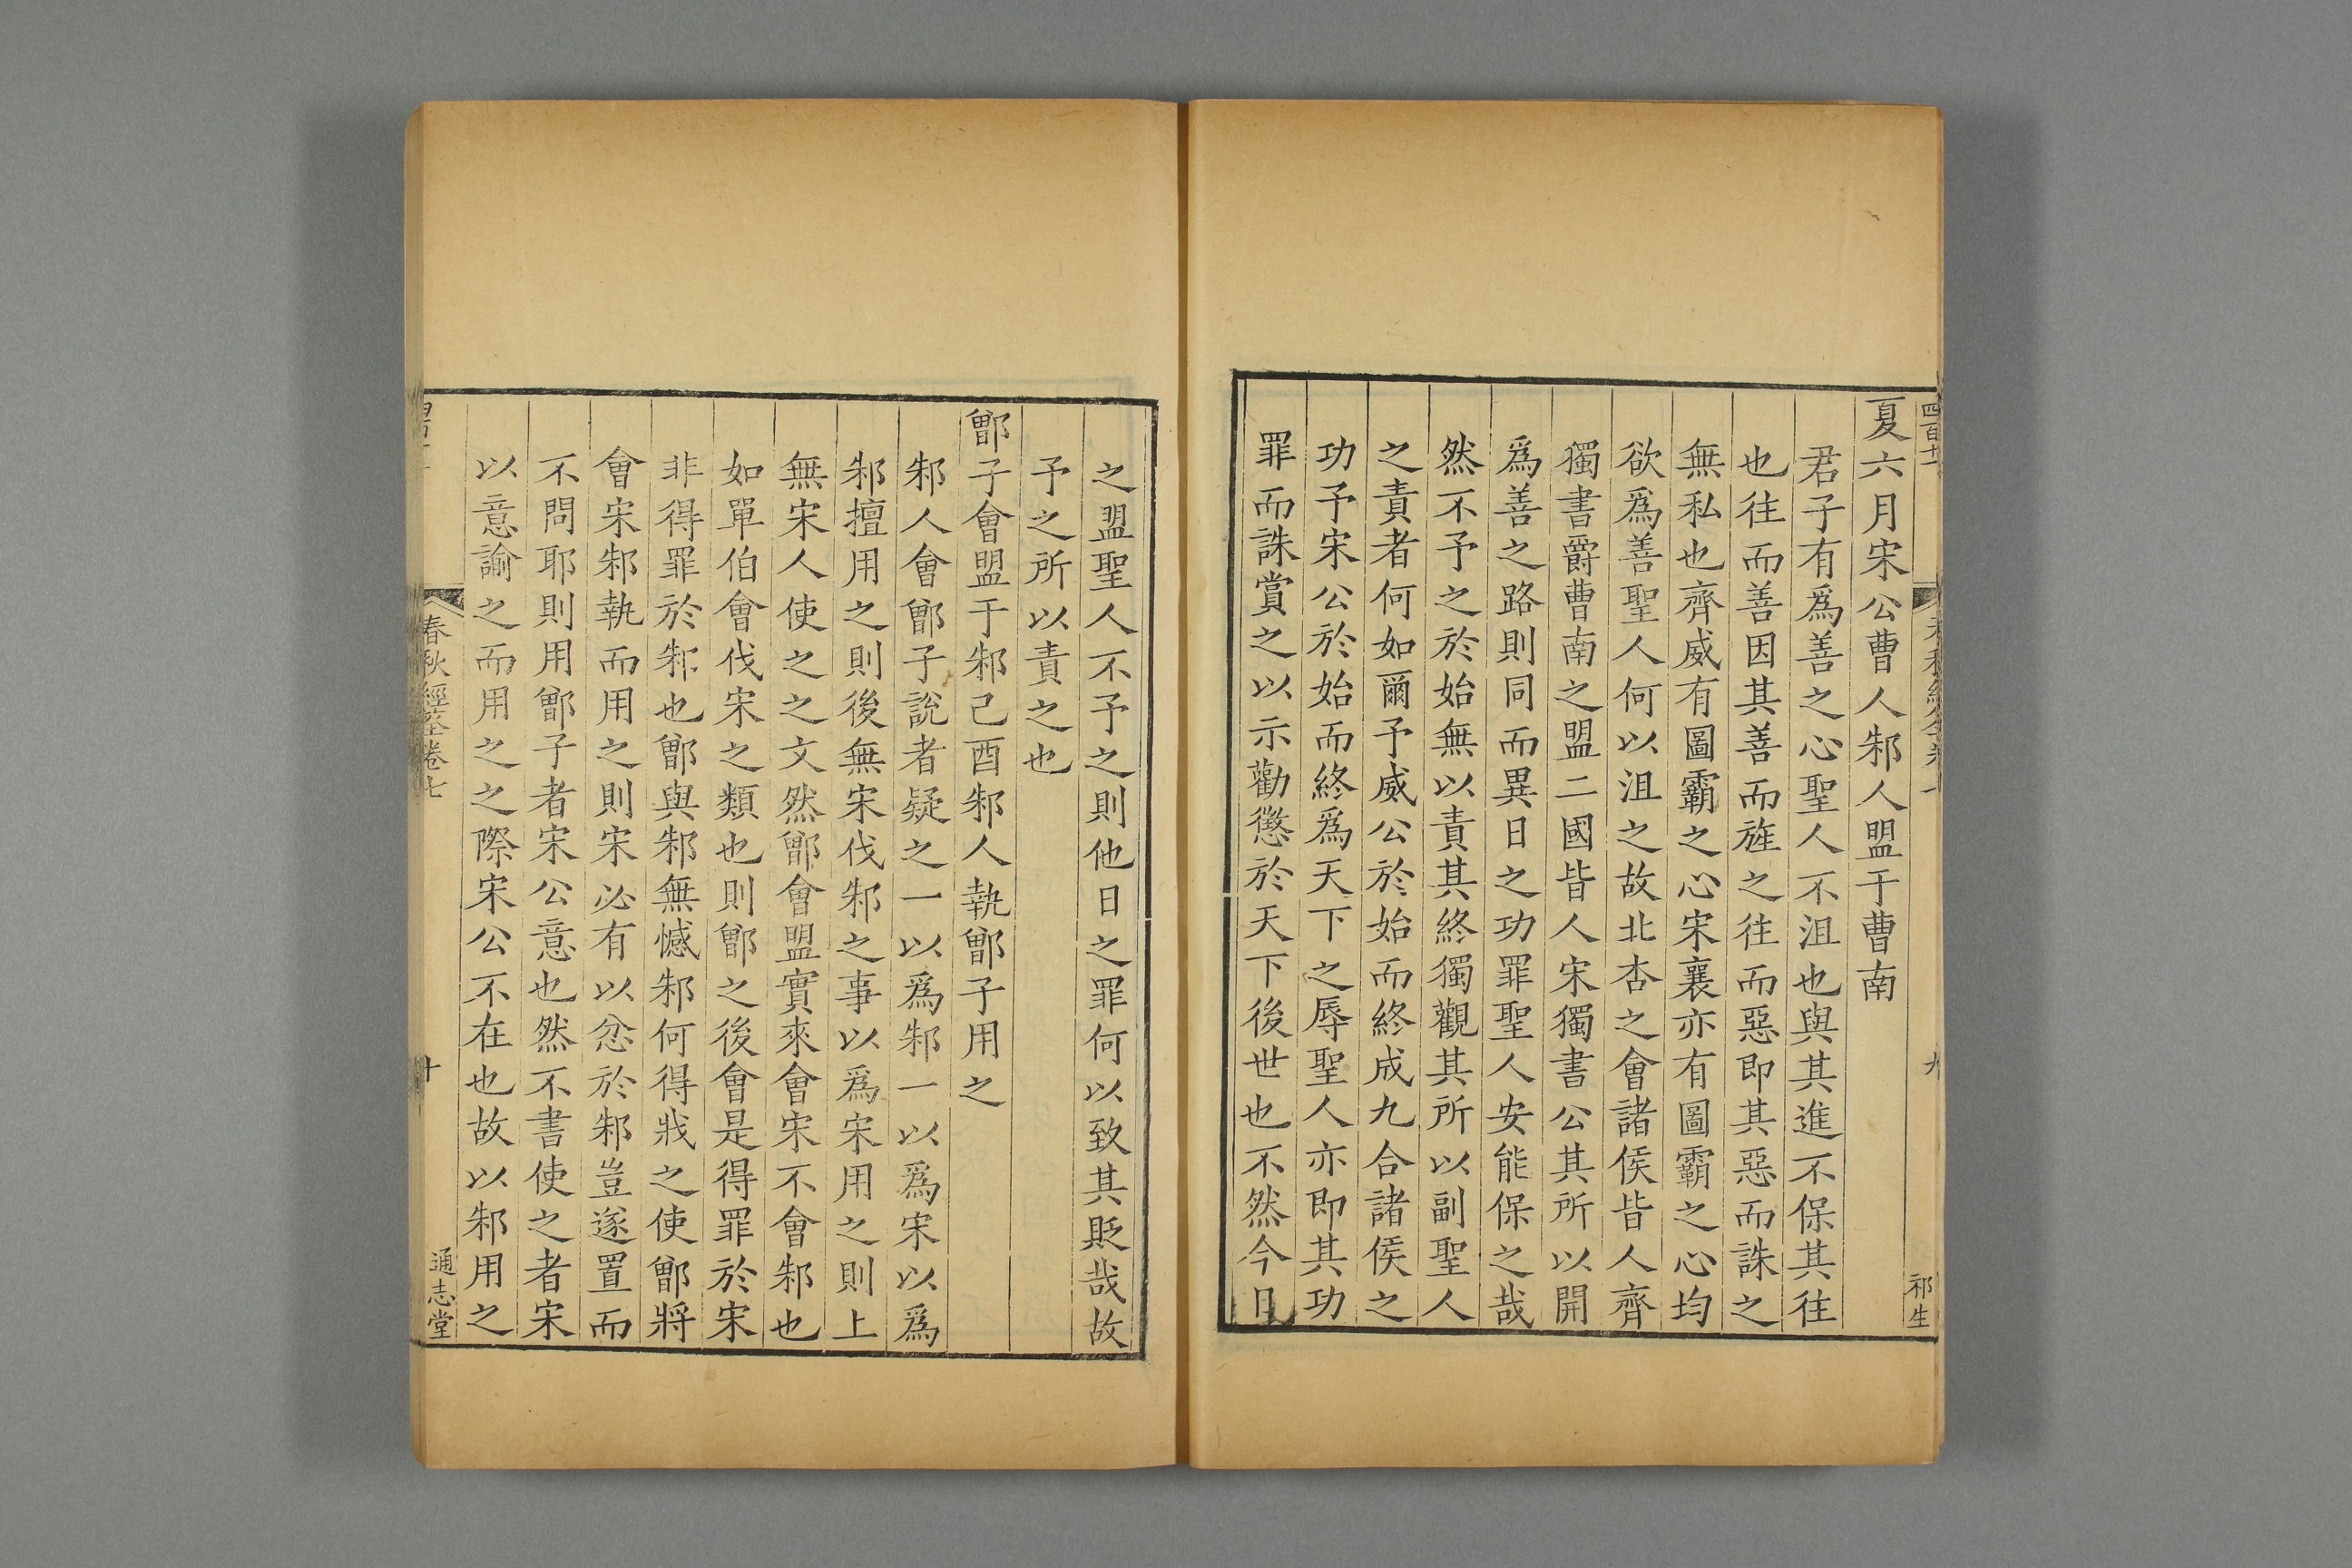 四百十
九
祁生
夏六月宋公曹人邾人盟于曹南
君子有爲善之心聖人不沮也與其進不保其往
也往而善因其善而旌之往而惡即其惡而誅之
無私也齊威有圖霸之心宋襄亦有圖霸之心均
欲爲善聖人何以沮之故北杏之會諸侯皆人齊
獨書爵曹南之盟二國皆人宋獨書公其所以開
爲善之路則同而異日之功罪聖人安能保之哉
然不予之於始無以責其終獨觀其所以副聖人
之責者何如爾予威公於始而終成九合諸侯之
功予宋公於始而終爲天下之辱聖人亦即其功
罪而誅賞之以示勸懲於天下後世也不然今日
之盟聖人不予之則他日之罪何以致其貶哉故
予之所以責之也
鄫子會盟于邾己酉邾人執鄫子用之
邾人會鄫子說者疑之一以爲邾一以爲宋以爲
邾擅用之則後無宋伐邾之事以爲宋用之則上
無宋人使之之文然鄫會盟實來會宋不會邾也
如單伯會伐宋之類也則鄫之後會是得罪於宋
非得罪於邾也鄫與邾無憾邾何得戕之使鄫將
會宋邾執而用之則宋必有以忿於邾豈遂置而
不問耶則用鄫子者宋公意也然不書使之者宋
以意諭之而用之之際宋公不在也故以邾用之
春秋經筌卷七
十
通志堂